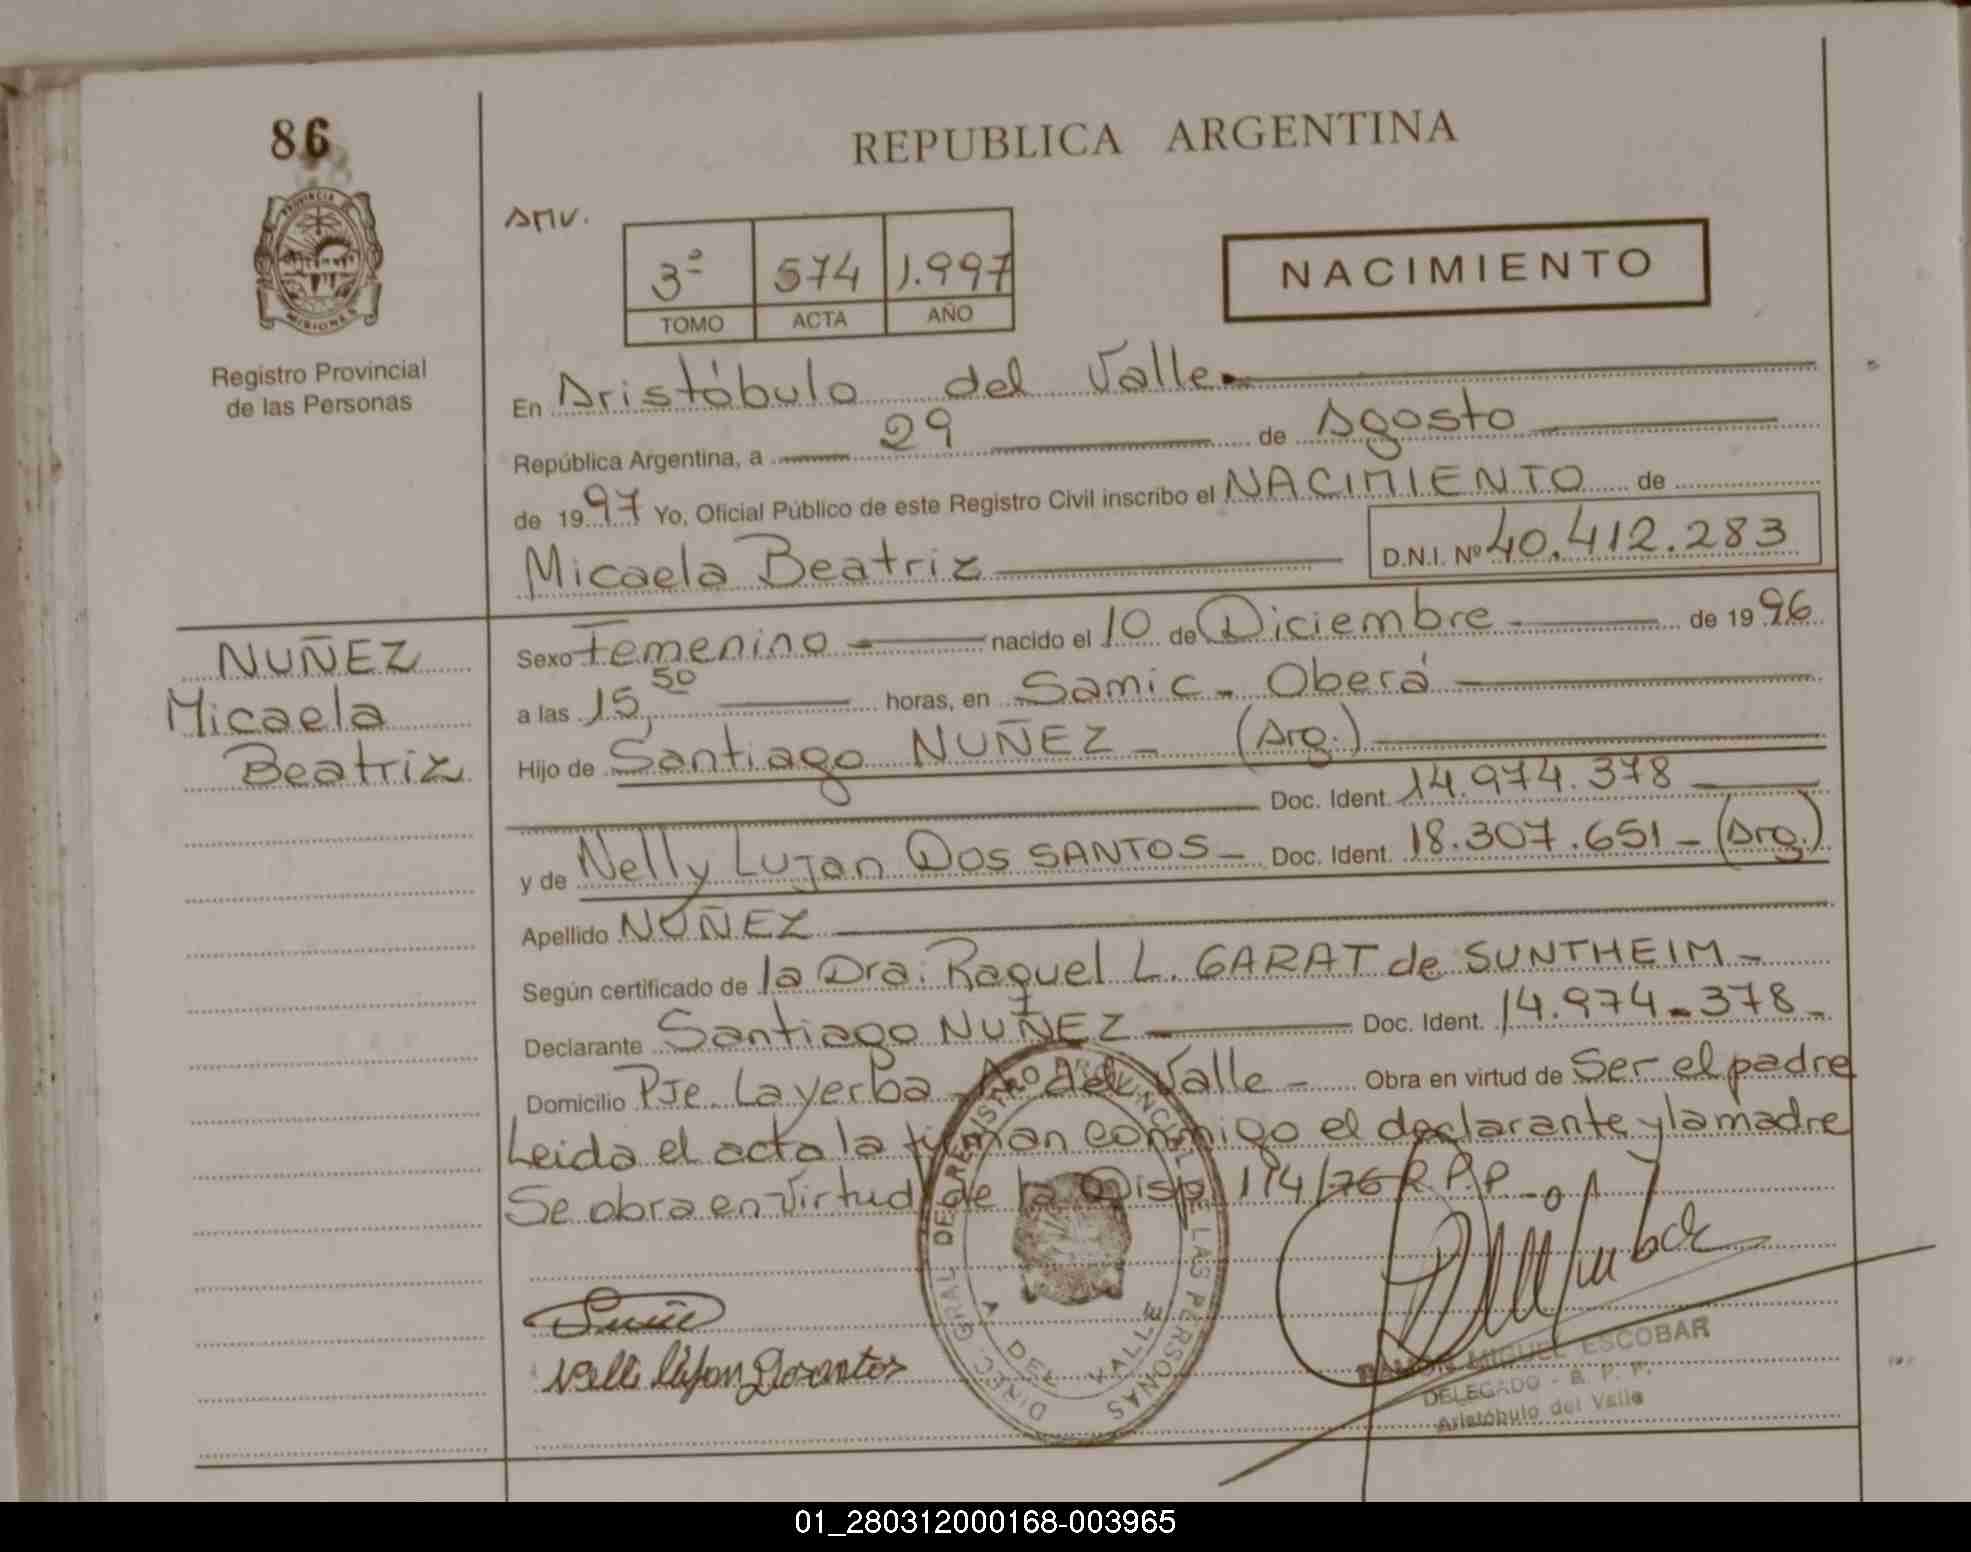 86
REPUBLICA ARGENTINA
PROVINCIA
MISIONES
Registro Provincial
de las Personas
AMV.
3º 574 1.997
TOMO ACTA AÑO
NACIMIENTO
En Aristóbulo del Valle
República Argentina, a 29 de Agosto
de 1997 Yo, Oficial Público de este Registro Civil inscribo el NACIMIENTO de
Micaela Beatriz D.N.I. Nº 40.412.283
NUÑEZ
Micaela
Beatriz
Sexo Femenino nacido el 10 de Diciembre de 1996
a las 15,50 horas, en Samic - Oberá
Hijo de Santiago NUÑEZ - (Arg.)
Doc. Ident. 14.974.378
y de Nelly Lujan Dos SANTOS - Doc. Ident. 18.307.651 - (Arg.)
Apellido NUÑEZ
Según certificado de la Dra. Raquel L. GARAT de SUNTHEIM -
Declarante Santiago NUÑEZ Doc. Ident. 14.974.378 -
Domicilio Pje. La yerba - A. del Valle - Obra en virtud de Ser el padre
Leida el acta la firman conmigo el declarante y la madre
Se obra en virtud de la Disp. 114/76 R.P.P.
DIREC. GRAL DE REGISTRO PROVINCIAL DE LAS PERSONAS
A DEL VALLE
RAMON MIGUEL ESCOBAR
DELEGADO - R. P. P.
Aristóbulo del Valle
01_280312000168-003965